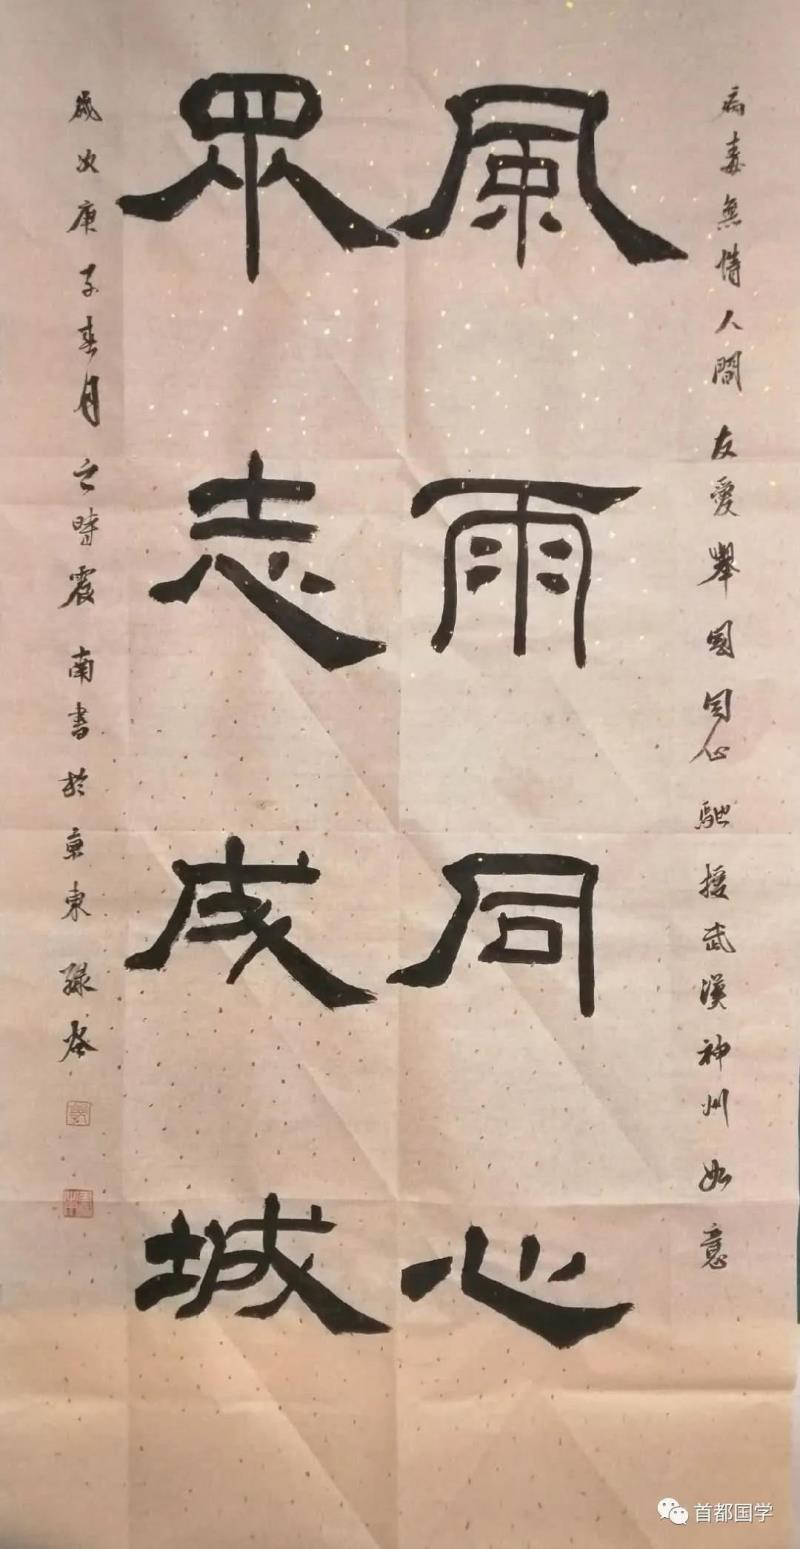 病毒無情人間友愛舉國同心馳援武漢神州如意
風雨同心
眾志成城
歲次庚子春月之時震南書於京東緑苔
首都国学